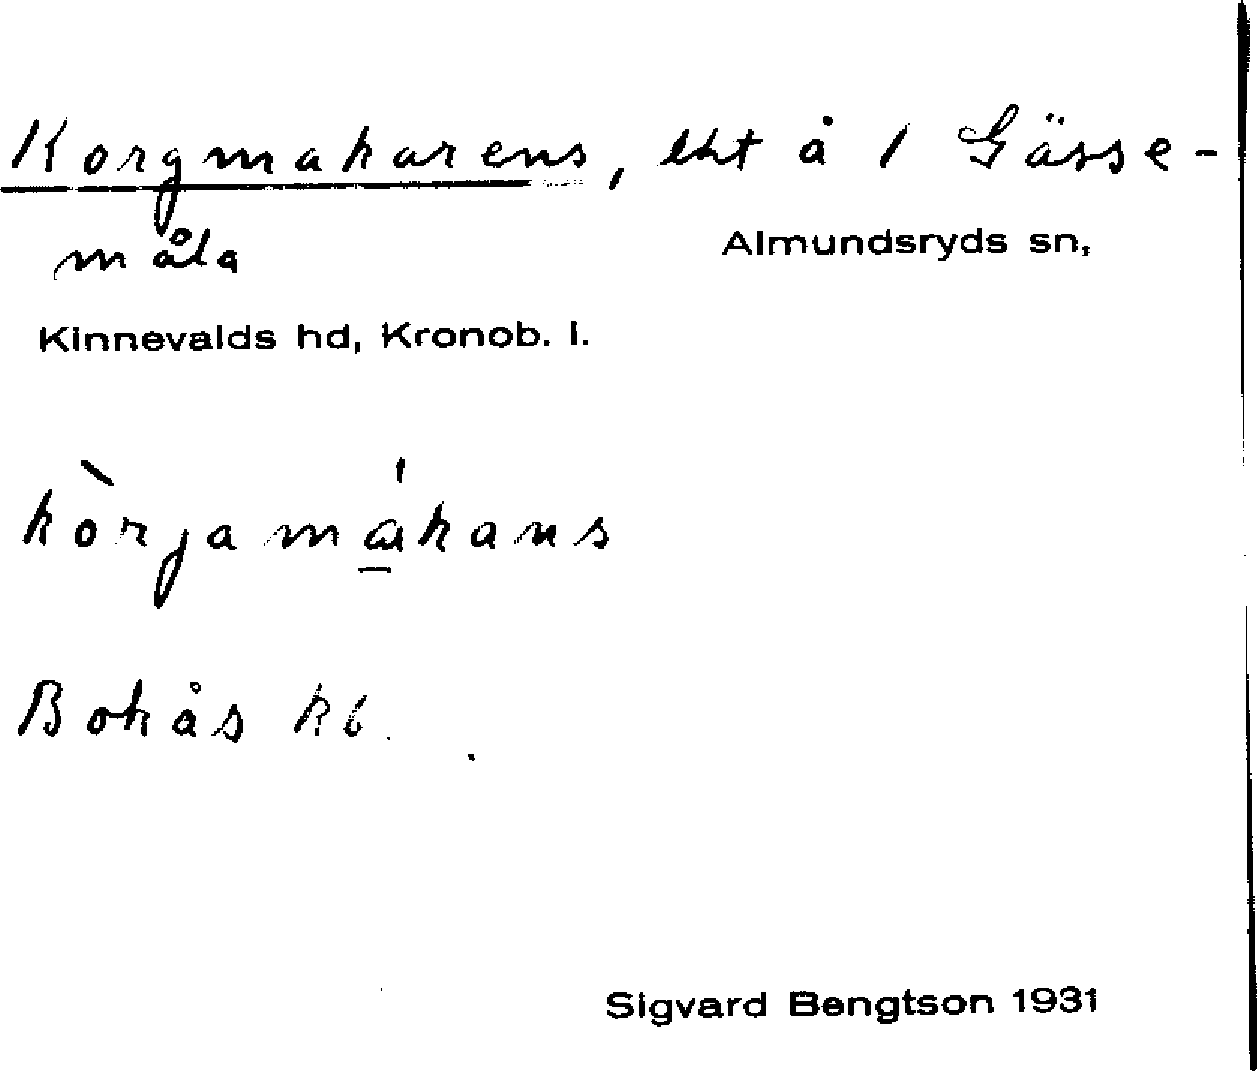 Korgmakarens, lht å 1 Gässe-
måla Almundsryds sn,
Kinnevalds hd, Kronob. l.
kòrjamákans
Bokås kb.
Sigvard Bengtson 1931